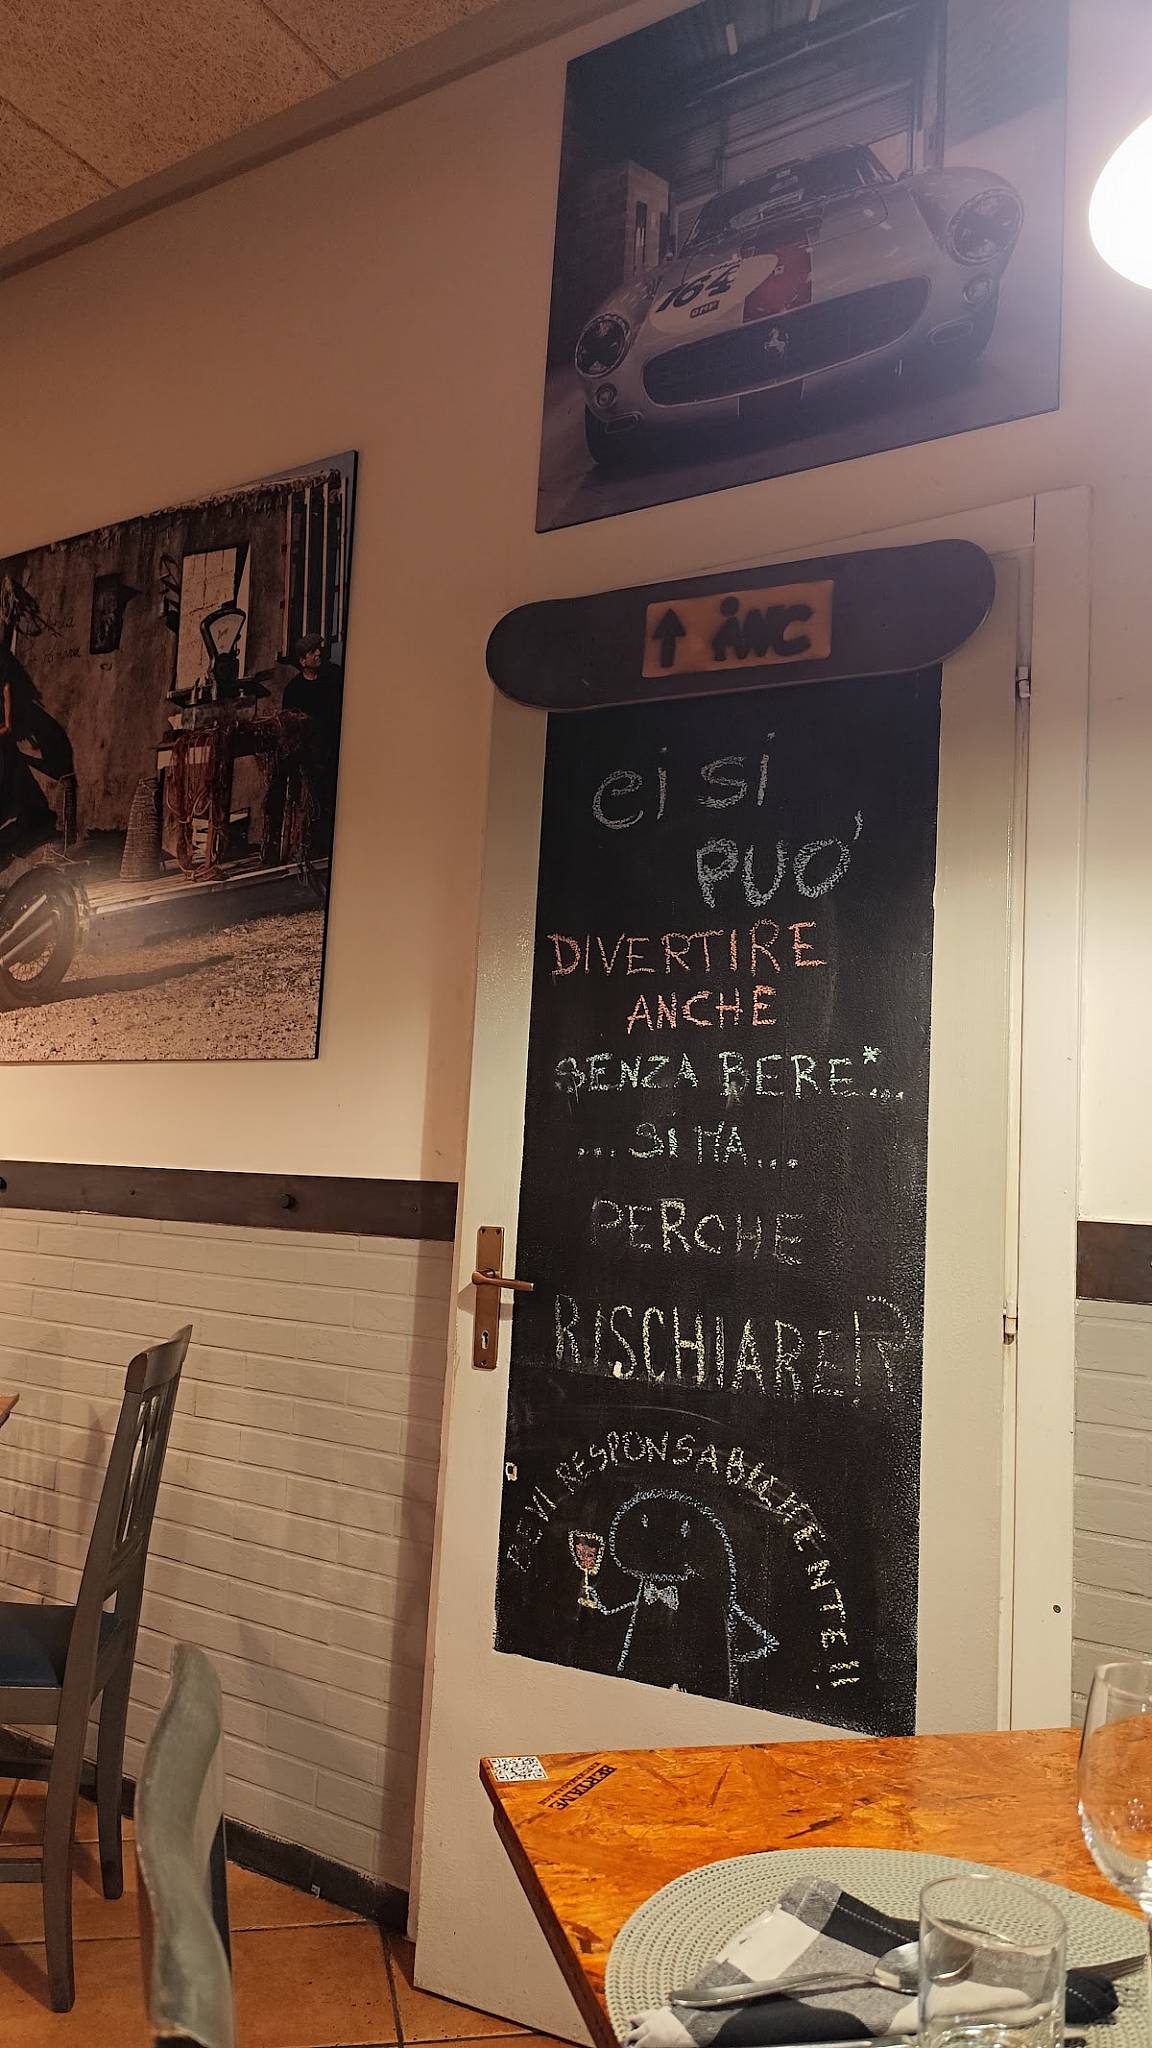 164
OMP
↑ INC
Ci Si
PUO'
DIVERTIRE
ANCHE
SENZA BERE*...
...Si MA...
PERCHE
RISCHIARE!?
BEVI RESPONSABILMENTE!!
BERTAME